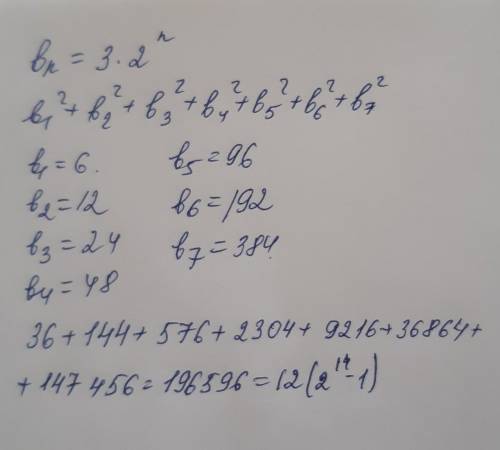 вn = 3·2ⁿ
в₁² + в₂² + в₃² + в₄² + в₅² + в₆² + в₇²
в₁ = 6. в₅ = 96
в₂ = 12 в₆ = 192
в₃ = 24 в₇ = 384.
в₄ = 48
36 + 144 + 576 + 2304 + 9216 + 36864 +
+ 147 456 = 196596 = 12(2¹⁴ - 1)